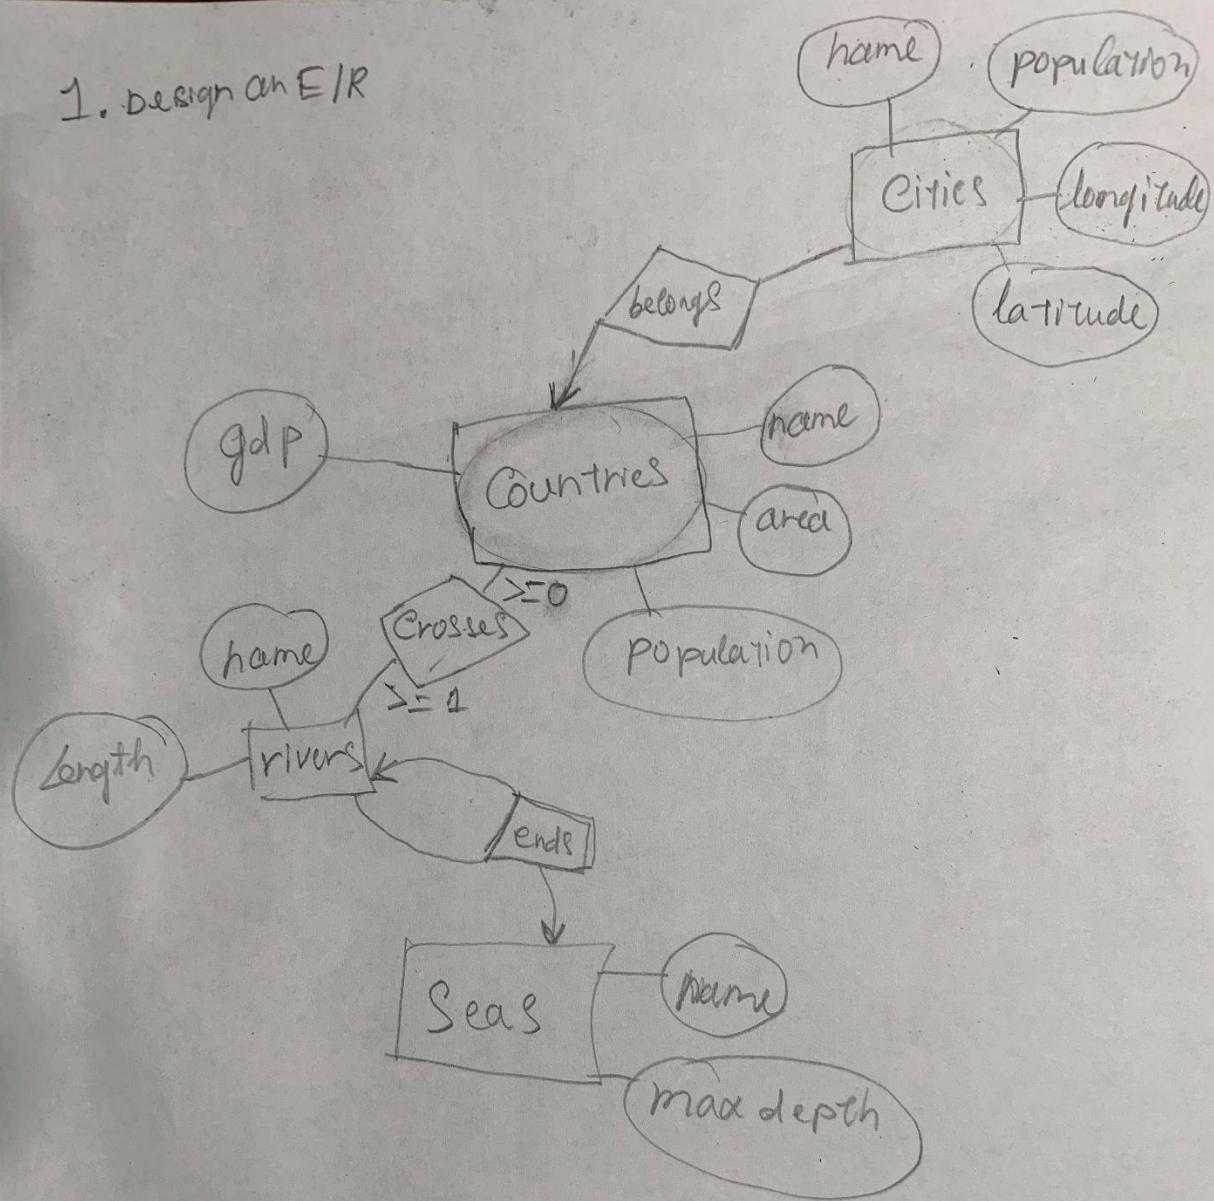 1. Design an E/R
name
population
Cities
longitude
latitude
belongs
gdp
Countries
name
area
>=0
Crosses
population
name
>=1
Length
rivers
ends
Seas
name
max depth